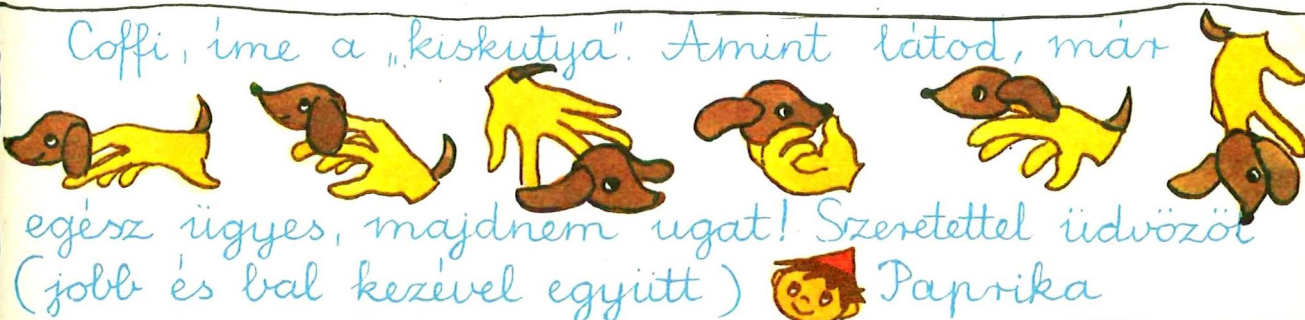 Coffi, íme a „kiskutya". Amint látod, már
egész ügyes, majdnem ugat! Szeretettel üdvözöl
(jobb és bal kezével együtt) Paprika